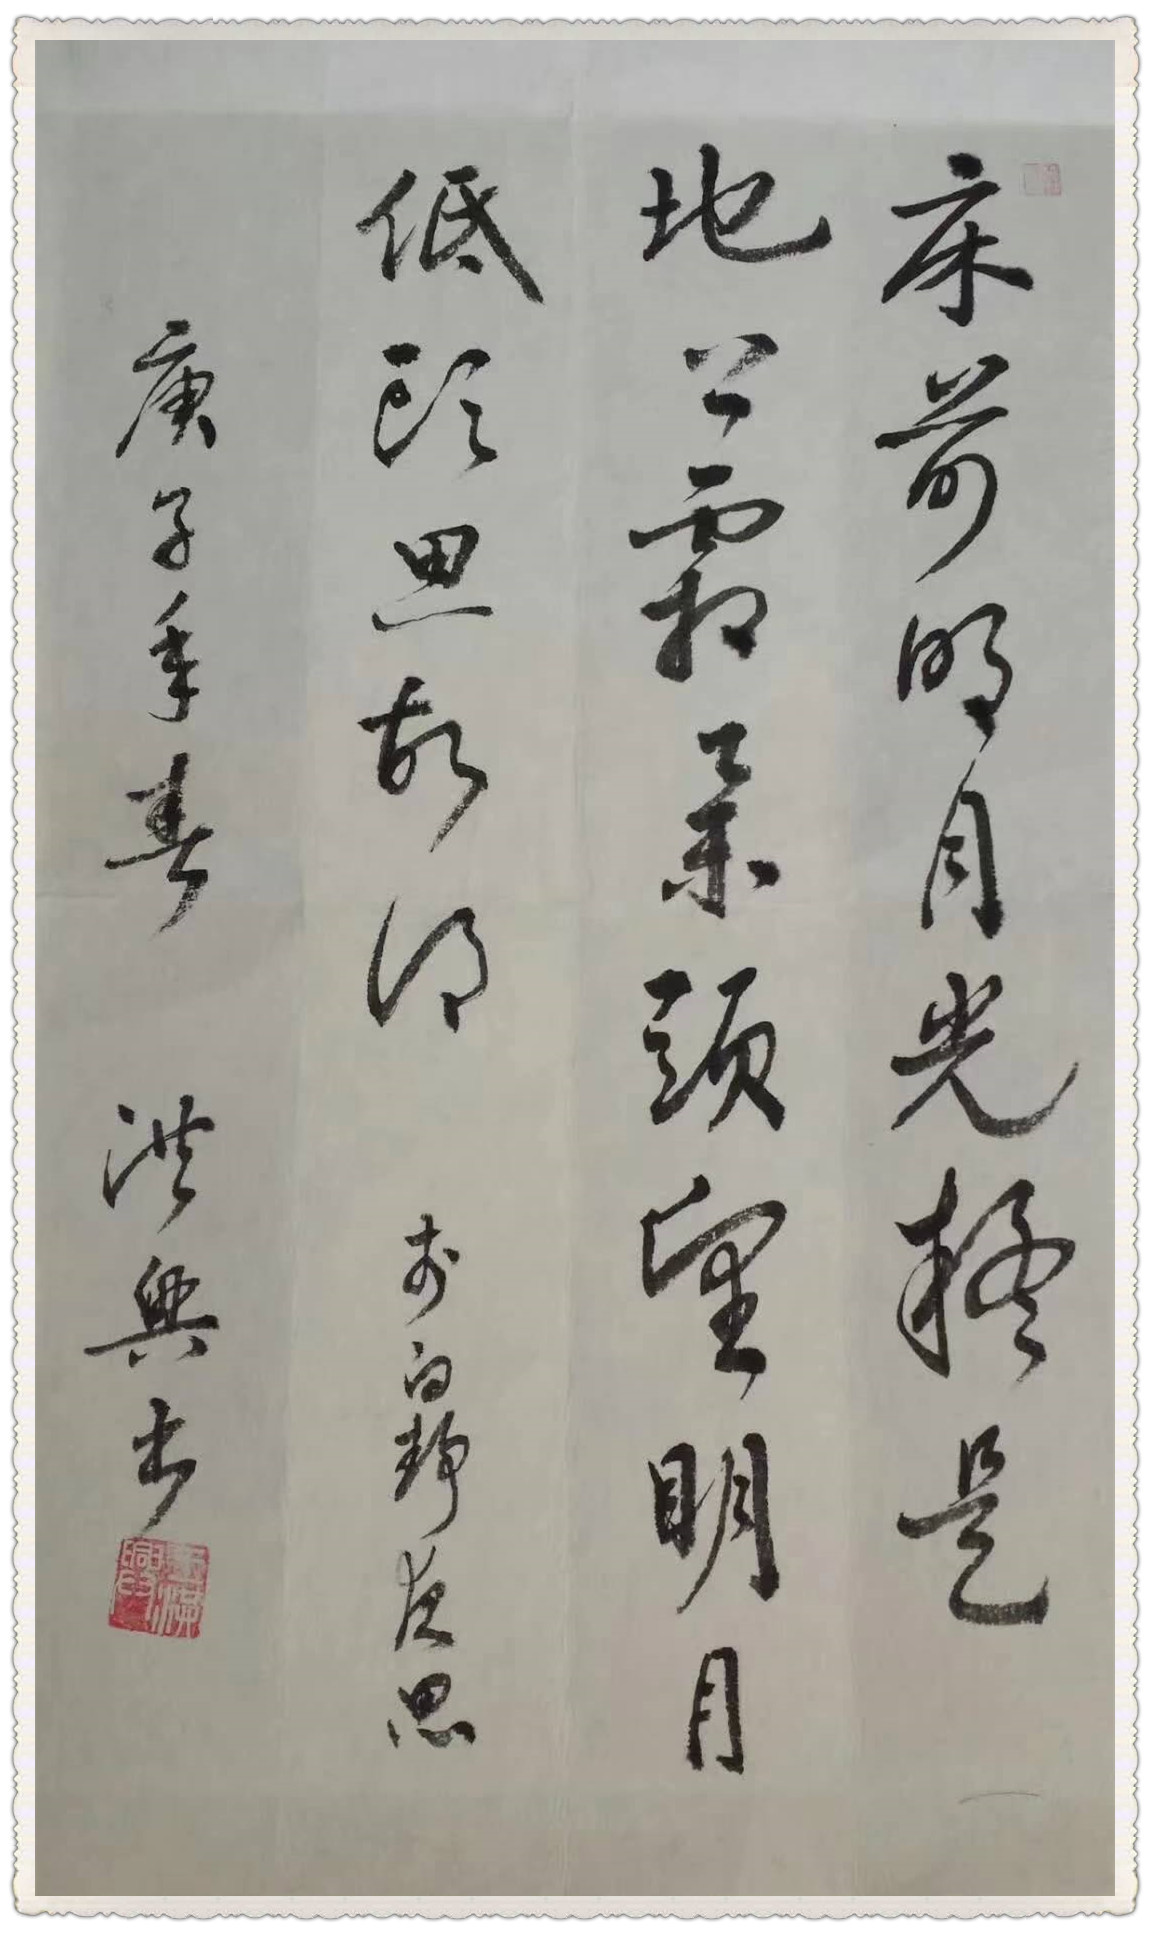 床前明月光疑是
地上霜举頭望明月
低頭思故鄉 李白靜夜思
庚子年春 洪興书